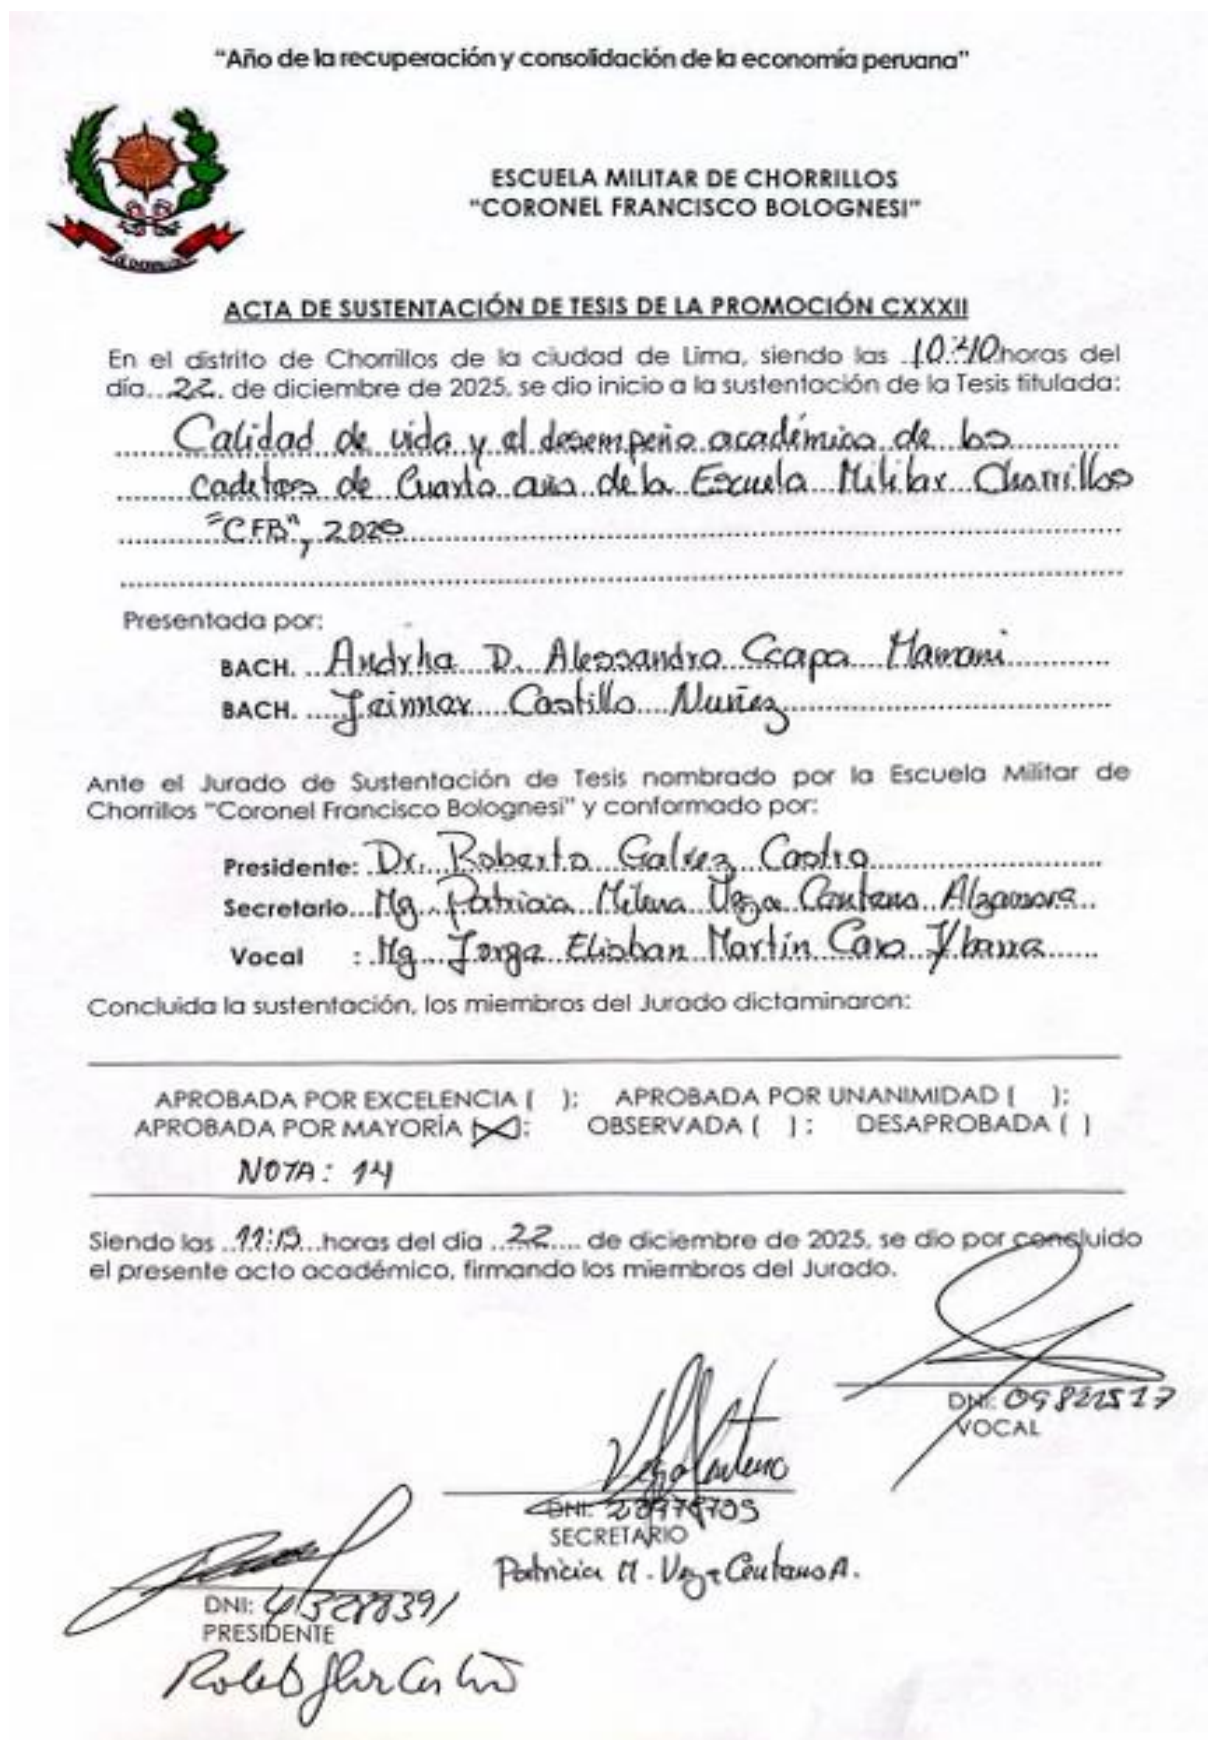 "Año de la recuperación y consolidación de la economía peruana"
DE CHORRILLOS
ESCUELA MILITAR DE CHORRILLOS
"CORONEL FRANCISCO BOLOGNESI"
ACTA DE SUSTENTACIÓN DE TESIS DE LA PROMOCIÓN CXXXII
En el distrito de Chorrillos de la ciudad de Lima, siendo las 10:40 horas del
día...22.. de diciembre de 2025, se dio inicio a la sustentación de la Tesis titulada:
Calidad de vida y el desempeño académico de los
cadetes de Cuarto año de la Escuela Militar Chorrillos
"CFB", 2025
Presentada por:
BACH. Andrha D. Alessandro Ccapa Mamani
BACH. Jeimar Castillo Nuñez
Ante el Jurado de Sustentación de Tesis nombrado por la Escuela Militar de
Chorrillos "Coronel Francisco Bolognesi" y conformado por:
Presidente: Dr. Roberto Galvez Castro
Secretario Mg. Patricia Milena Vega Centeno Alzamora
Vocal : Mg. Jorge Elisban Martín Caro Ybarra
Concluida la sustentación, los miembros del Jurado dictaminaron:
APROBADA POR EXCELENCIA ( ); APROBADA POR UNANIMIDAD ( );
APROBADA POR MAYORÍA (X); OBSERVADA ( ) ; DESAPROBADA ( )
NOTA: 14
Siendo las 11:15 horas del día 22 de diciembre de 2025, se dio por concluido
el presente acto académico, firmando los miembros del Jurado.
DNI:
VOCAL
Vega Centeno
DNI:
SECRETARIO
Patricia M. Vega Centeno A.
DNI: 41328839/
PRESIDENTE